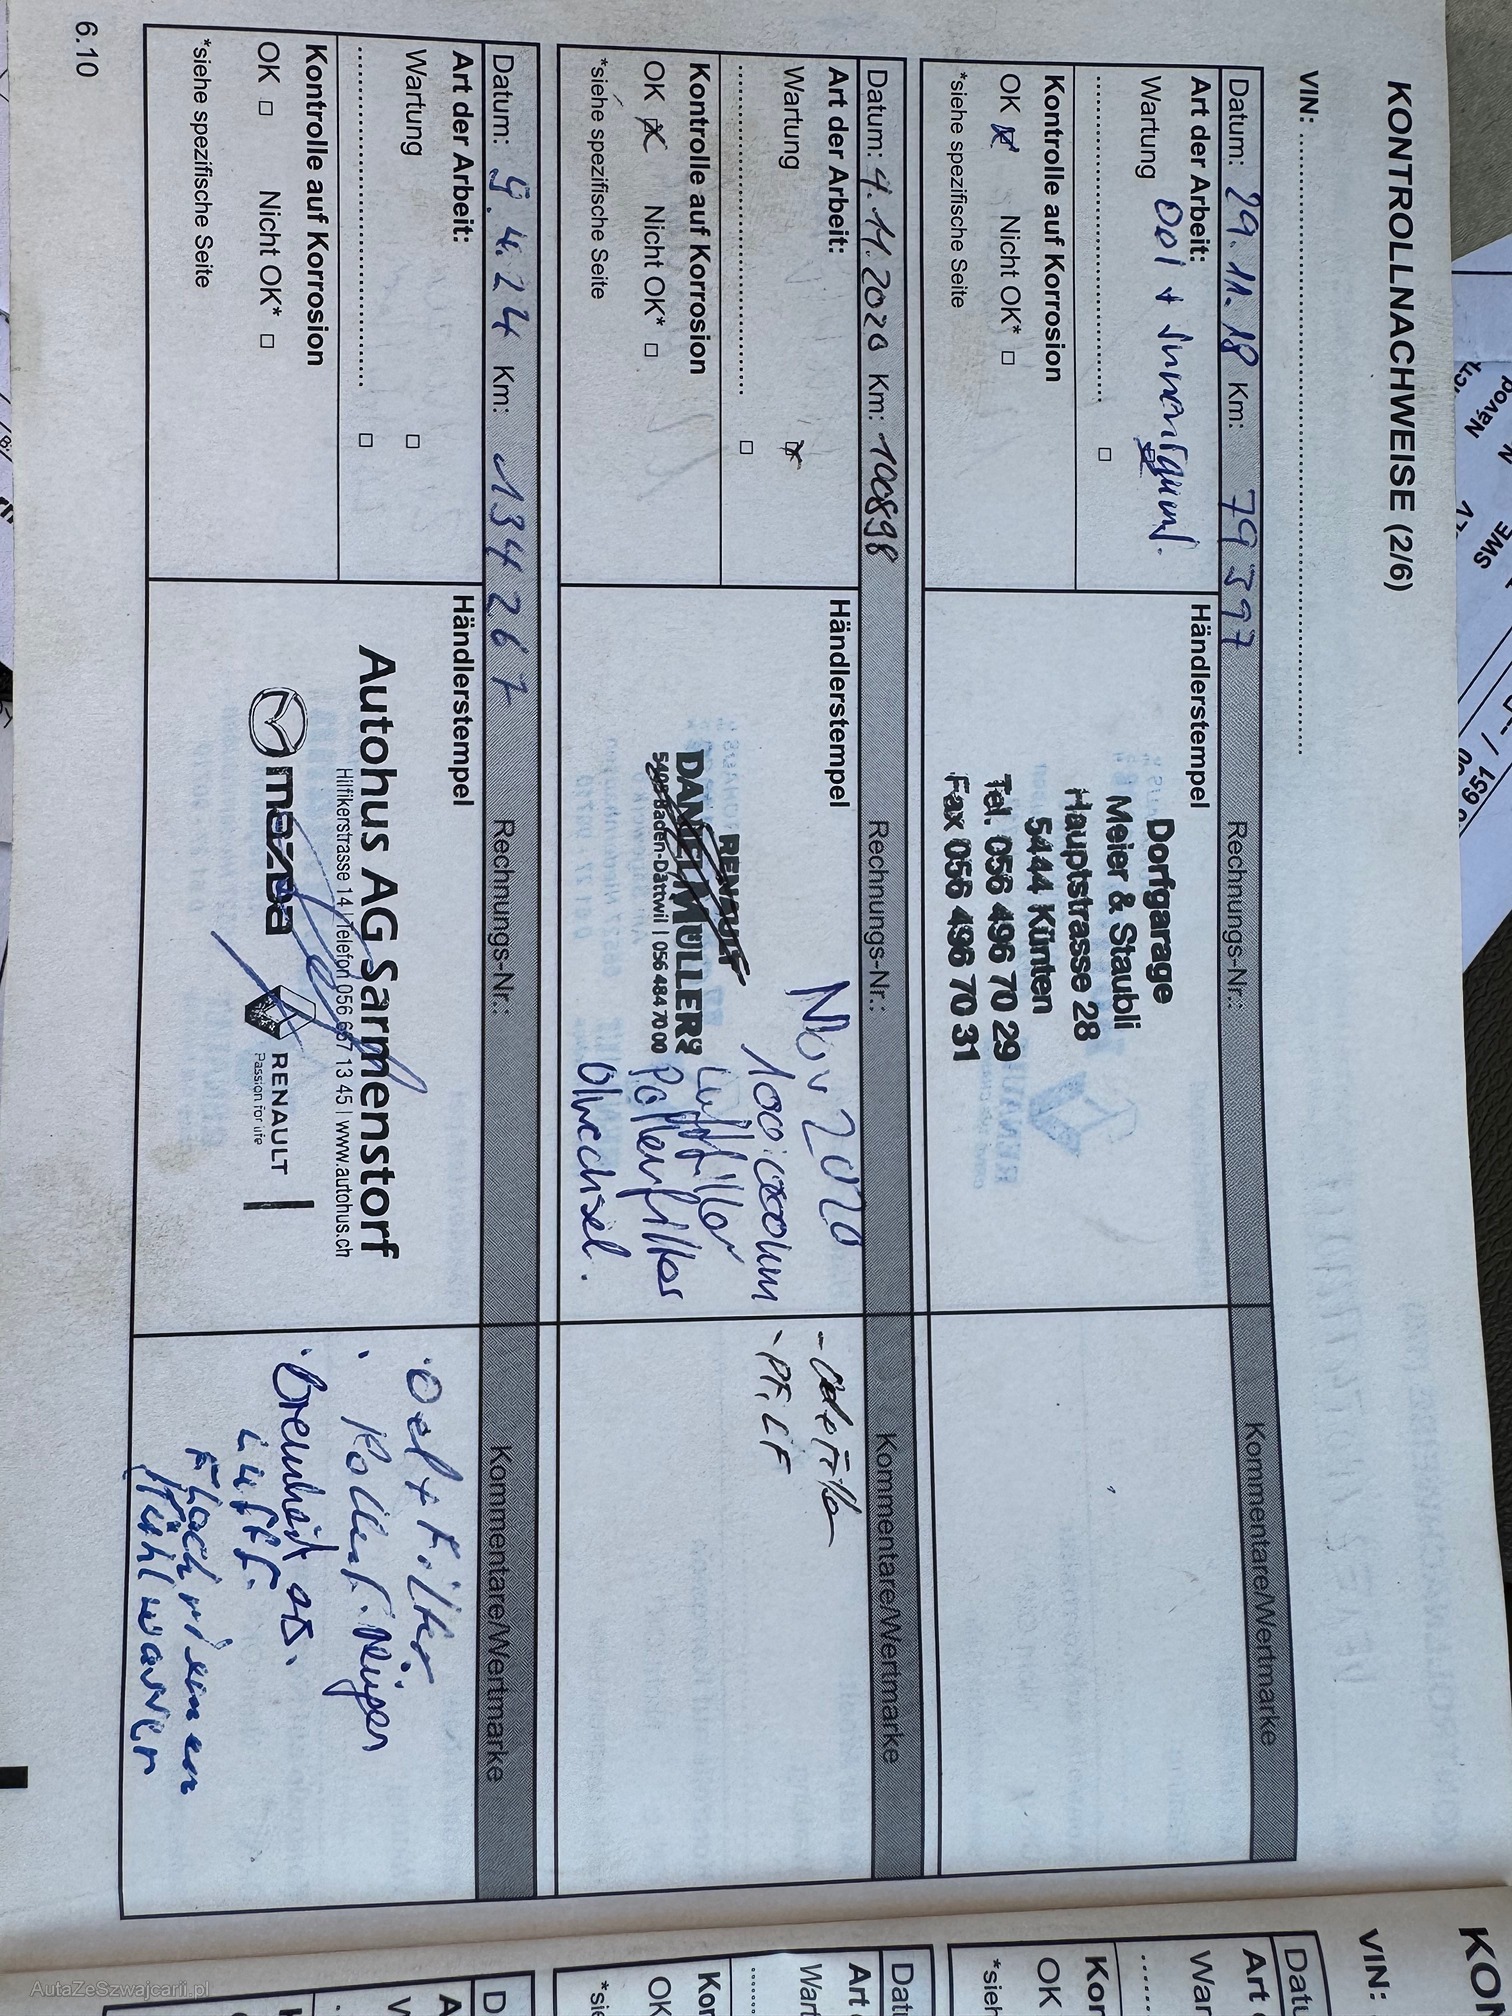 KONTROLLNACHWEISE (2/6)
VIN:
Datum: 29.11.18 Km: 79397 Rechnungs-Nr.: Kommentare/Wertmarke
Art der Arbeit:
Wartung
Oel +
Kontrolle auf Korrosion
OK Nicht OK*
*siehe spezifische Seite
Händlerstempel
Dorfgarage
Meier & Staubli
Hauptstrasse 28
5444 Künten
Tel. 056 496 70 29
Fax 056 496 70 31
Datum: 4.11.2020 Km: 100898 Rechnungs-Nr.: Kommentare/Wertmarke
Art der Arbeit:
Wartung
Kontrolle auf Korrosion
OK Nicht OK*
*siehe spezifische Seite
Händlerstempel
RENAULT
5405 Baden-Dättwil | 056 484 70 00
Nov 2020
Luftfilter
Pollenfilter
Ölwechsel.
- PF, LF
Datum: 9.4.24 Km: 134267 Rechnungs-Nr.: Kommentare/Wertmarke
Art der Arbeit:
Wartung
Kontrolle auf Korrosion
OK Nicht OK*
*siehe spezifische Seite
Händlerstempel
Autohus AG Sarmenstorf
Hilfikerstrasse 14 | Telefon 056 667 13 45 | www.autohus.ch
mazda
RENAULT
Passion for life
· Oel + Filter
Luftf.
Flachriemen
Kühlwasser
6.10
VIN:
AutaZeSzwajcarii.pl